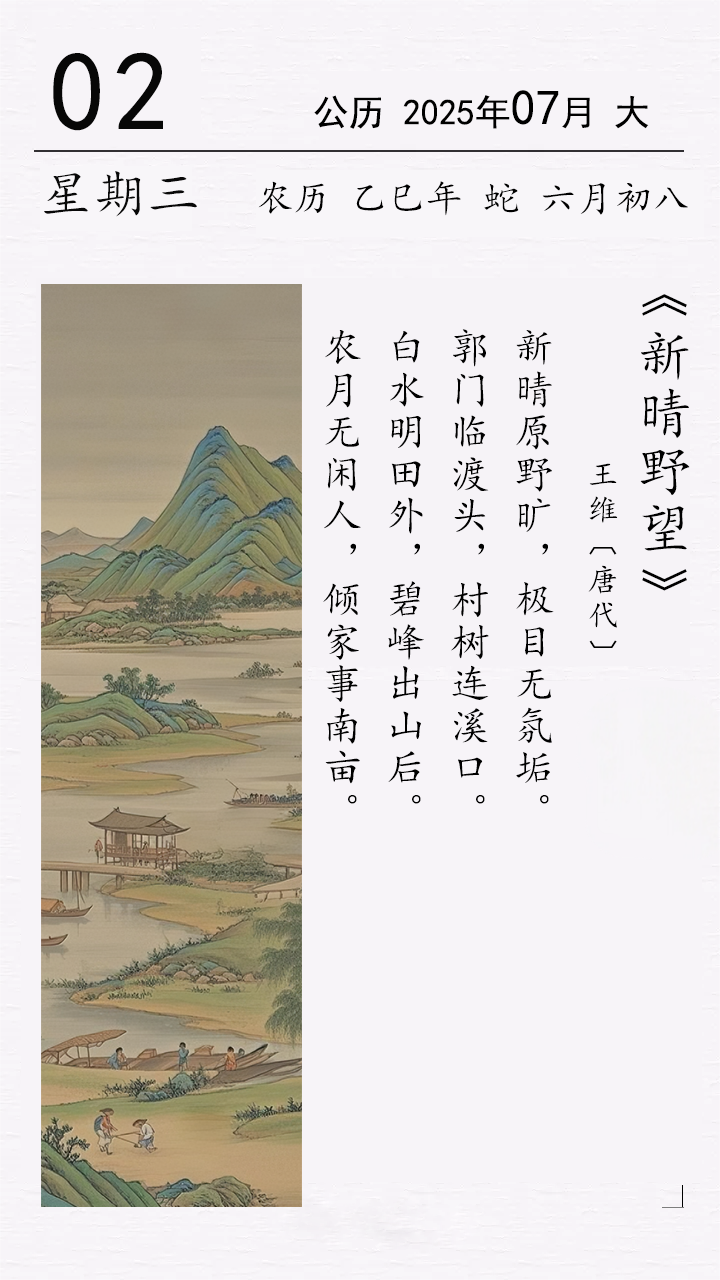 02
公历 2025年07月 大
星期三
农历 乙巳年 蛇 六月初八
《新晴野望》
王维〔唐代〕
新晴原野旷，极目无氛垢。
郭门临渡头，村树连溪口。
白水明田外，碧峰出山后。
农月无闲人，倾家事南亩。